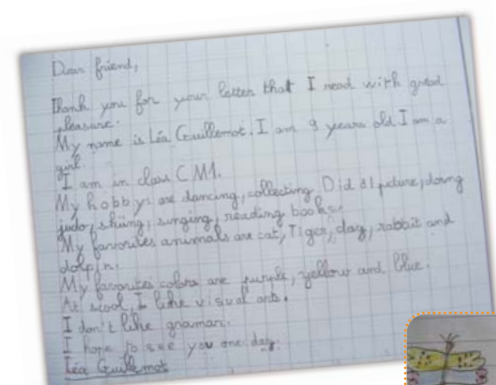 Dear friend,
Thank you for your letter that I read with great
pleasure.
My name is Léa Guillemot. I am 9 years old I am a
girl.
I am in class CM1.
My hobbys are dancing, collecting picture, doing
judo, skiing, singing, reading books.
My favorites animals are cat, Tiger, dog, rabbit and
dolpin.
My favorites colors are purple, yellow and blue.
At scool, I like visual arts.
I don't like gramar.
I hope to see you one day.
Léa Guillemot